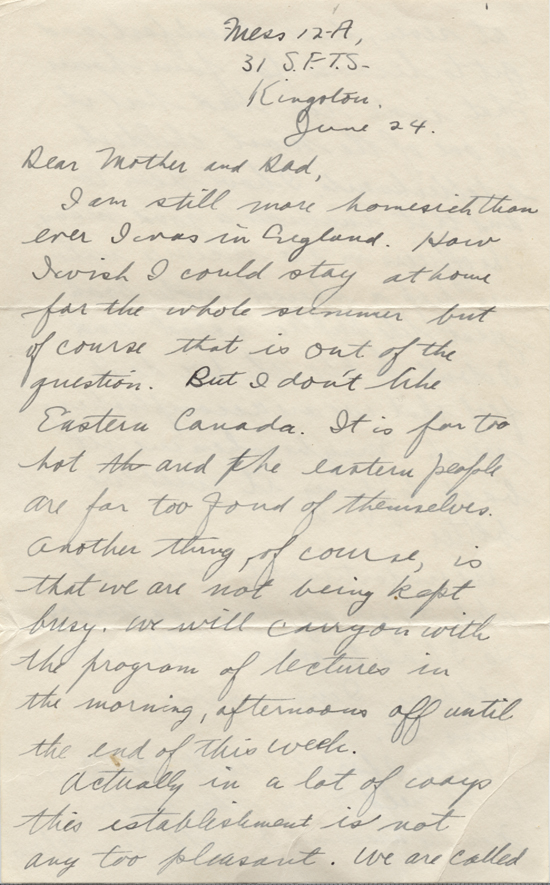 Mess 12-A,
31 S.F.T.S-
Kingston.
June 24.
Dear Mother and Dad,
I am still more homesick than
ever I was in England. How
I wish I could stay at home
for the whole summer but
of course that is out of the
question. But I don't like
Eastern Canada. It is far too
hot th and the eastern people
are far too fond of themselves.
Another thing, of course, is
that we are not being kept
busy. We will carry on with
the program of lectures in
the morning, afternoons off until
the end of this week.
Actually in a lot of ways
this establishment is not
any too pleasant. We are called